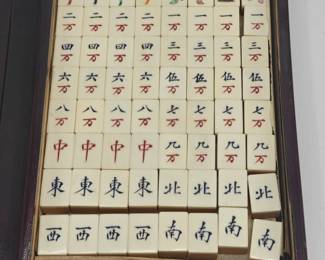 二 二 二 二 一 一 一 一
万 万 万 万 万 万 万 万
四 四 四 四 三 三 三 三
万 万 万 万 万 万 万 万
六 六 六 六 伍 伍 伍 伍
万 万 万 万 万 万 万 万
八 八 八 八 七 七 七 七
万 万 万 万 万 万 万 万
中 中 中 中 九 九 九 九
万 万 万 万
東 東 東 東 北 北 北 北
西 西 西 西 南 南 南 南